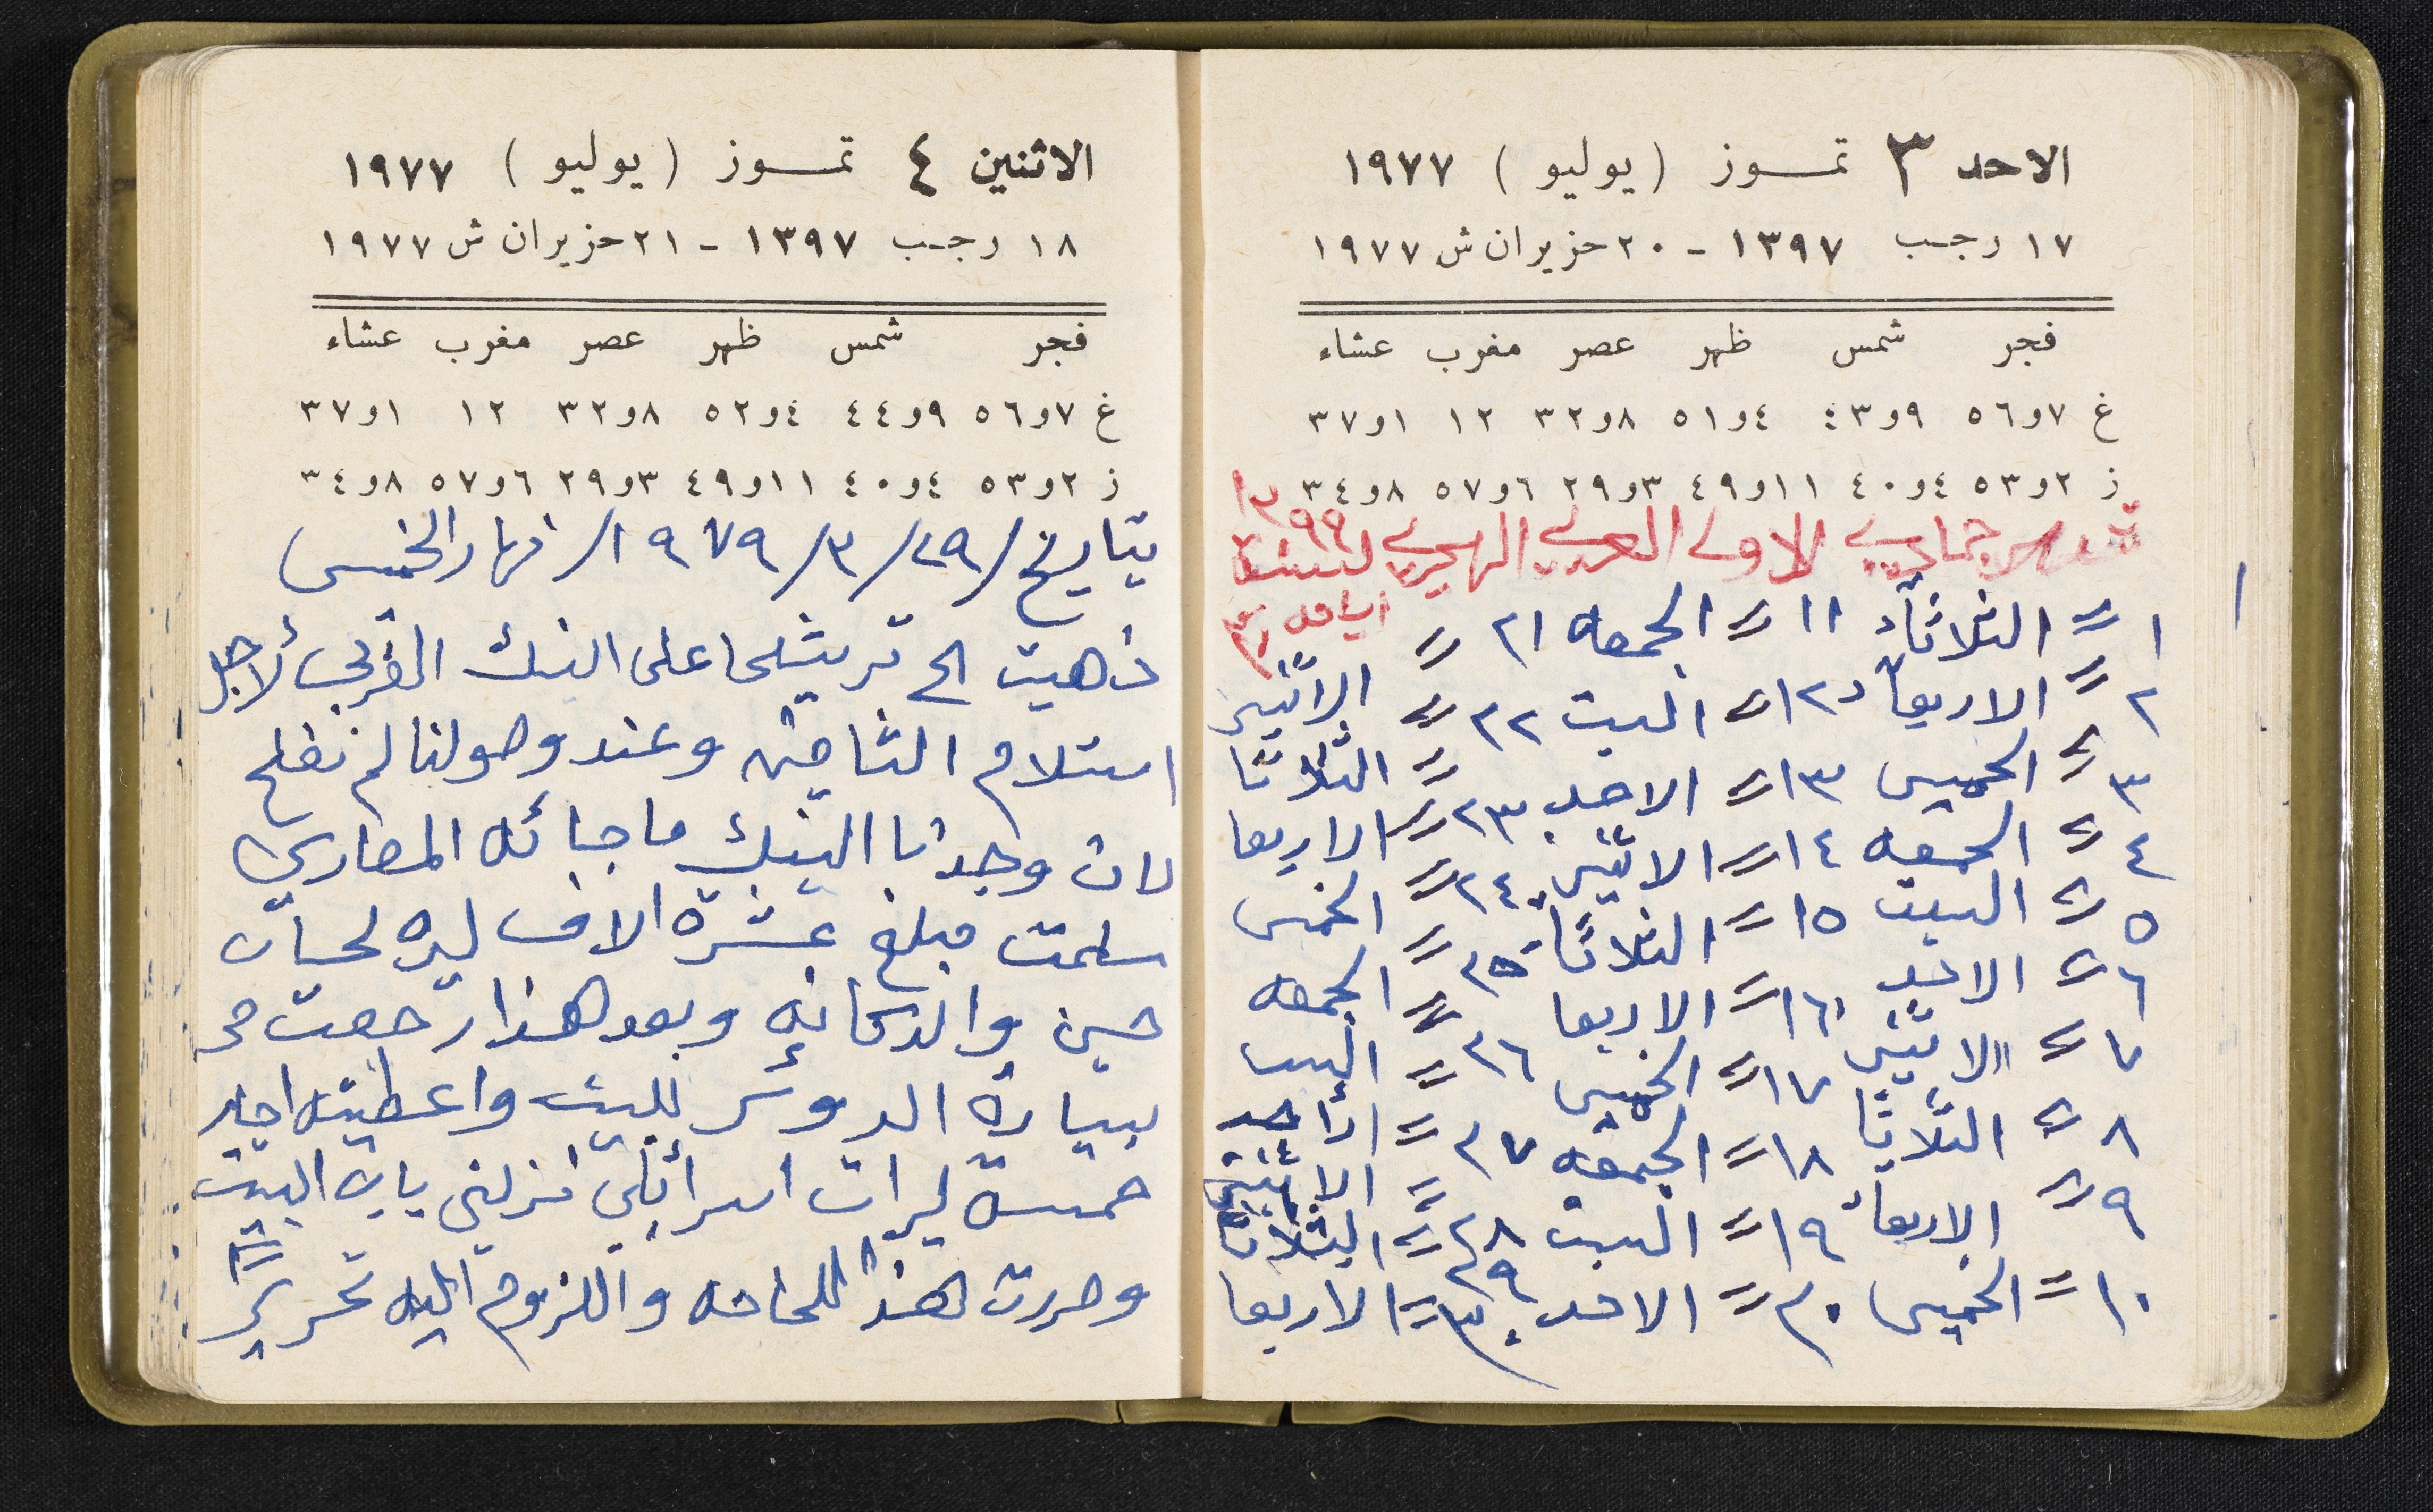 الاحد ٣ تمـــوز (يوليو) ١٩٧٧
١٧ رجـب ١٣٩٧ - ٢٠ حزيران ش ١٩٧٧
فجر شمس ظهر عصر مغرب عشاء
غ ٧و٥٦ ٩و٤٣ ٤و٥١ ٨و٣٢ ١٢ ١و٣٧
ز ٢و٥٣ ٤و٤٠ ١١و٤٩ ٣و٢٩ ٦و٥٧ ٨و٣٤
شهر جمادى الاولى العربي الهجري لسنة ١٣٩٩
ايامه ٣٠
١ = الثلاثاء ١١ = الجمعه ٢١ = الاثنين
٢ = الاربعاء ١٢ = السبت ٢٢ = الثلاثا
٣ = الخميس ١٣ = الاحد ٢٣ = الاربعا
٤ = الجمعه ١٤ = الاثنين ٢٤ = الخميس
٥ = السبت ١٥ = الثلاثاء ٢٥ = الجمعه
٦ = الاحد ١٦ = الاربعا ٢٦ = السبت
٧ = الاثنين ١٧ = الخميس ٢٧ = الأحد
٨ = الثلاثا ١٨ = الجمعه ٢٨ = الاثنين
٩ = الاربعاء ١٩ = السبت ٢٩ = الثلاثا
١٠ = الخميس ٢٠ = الاحد ٣٠ = الاربعا
الاثنين ٤ تمـــوز (يوليو) ١٩٧٧
١٨ رجـب ١٣٩٧ - ٢١ حزيران ش ١٩٧٧
فجر شمس ظهر عصر مغرب عشاء
غ ٧و٥٦ ٩و٤٤ ٤و٥٢ ٨و٣٢ ١٢ ١و٣٧
ز ٢و٥٣ ٤و٤٠ ١١و٤٩ ٣و٢٩ ٦و٥٧ ٨و٣٤
بتاريخ / ٢٩ / ٣ / ١٩٧٩ / نهار الخميس
ذهبت الى ترشيحا على البنك العربي لأجل
استلام التامين وعند وصولنا لم نفلح
لان وجدنا البنك ما جائه المصاري
سلمت مبلغ عشرة الاف ليره لحسان
حسين والدكانه وبعد هذا رجعت
بسيارة الدوس للبيت واعطيته اجار
خمسة ليرات اسرائلي نزلني باب البيت
وحررت هذا للحاجه واللزوم اليه تحرير